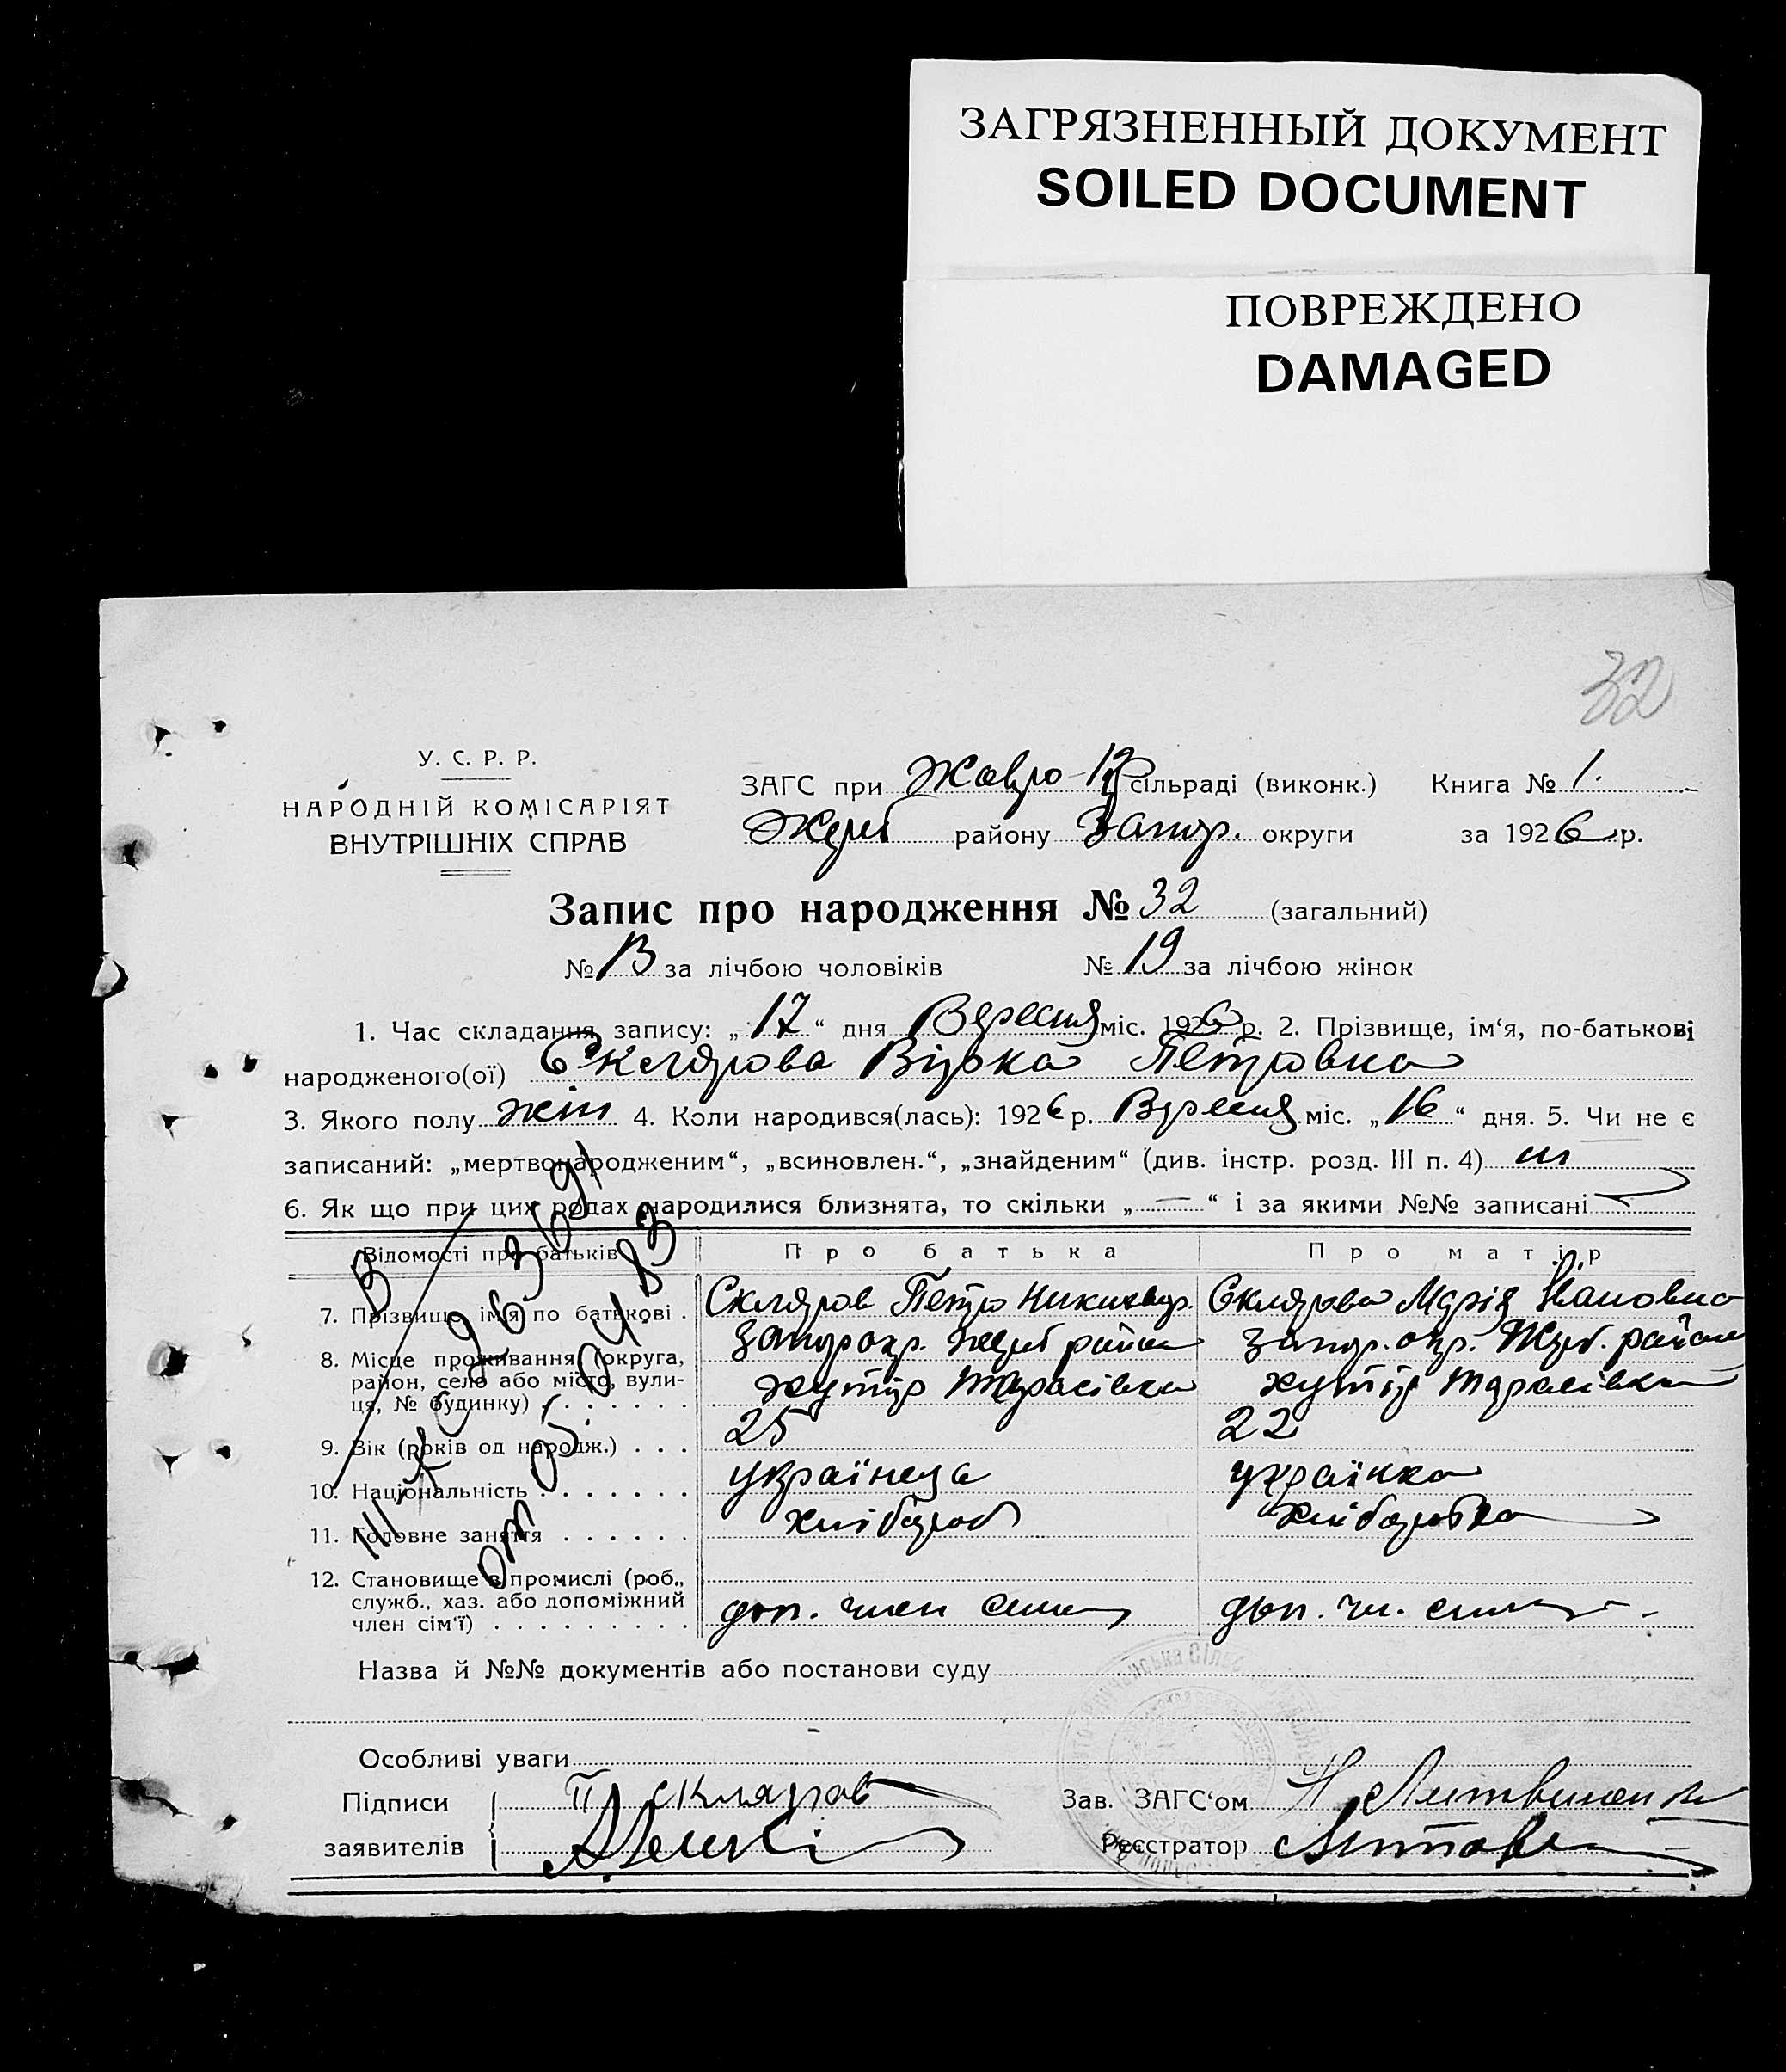 ЗАГРЯЗНЕННЫЙ ДОКУМЕНТ
SOILED DOCUMENT
ПОВРЕЖДЕНО
DAMAGED
32
У. С. Р. Р.
НАРОДНІЙ КОМІСАРІЯТ
ВНУТРІШНІХ СПРАВ
ЗАГС при сільраді (виконк.) Книга № 1.
Жереб району Запор. округи за 1926 р.
Запис про народження № 32 (загальний)
№ 13 за лічбою чоловіків № 19 за лічбою жінок
1. Час складання запису: „17“ дня Вересня міс. 1926 р. 2. Прізвище, ім‘я, по-батькові
народженого(ої) Склярова Вірка Петровна
3. Якого полу жін 4. Коли народився(лась): 1926 р. Вересня міс. „16“ дня. 5. Чи не є
записаний: „мертвонародженим“, „всиновлен.“, „знайденим“ (див. інстр. розд. III п. 4) ні
6. Як що при цих родах народилися близнята, то скільки „—“ і за якими №№ записані
Відомості про батьків Про батька Про матір
7. Прізвище, ім‘я по батькові . Скляров Петро Склярова Марія Івановна
8. Місце проживання (округа, Запор окр. Жереб район Запор. окр. Жереб. район
район, село або місто, вули- хутір Тарасівка хутір Тарасівка
ця, № будинку)
9. Вік (років од народж.) . . . 25 22
10. Національність . . . . . . . українець українка
11. Головне заняття . . . . . . хлібороб хліборобка
12. Становище в промислі (роб.,
служб., хаз. або допоміжний доп. член сім'ї доп. чл. сім'ї
член сім‘ї) . . . . . . . . .
от 05.04.83
Назва й №№ документів або постанови суду
Особливі уваги
Підписи П Скляров Зав. ЗАГС‘ом Н Литвиненко
заявителів Реєстратор